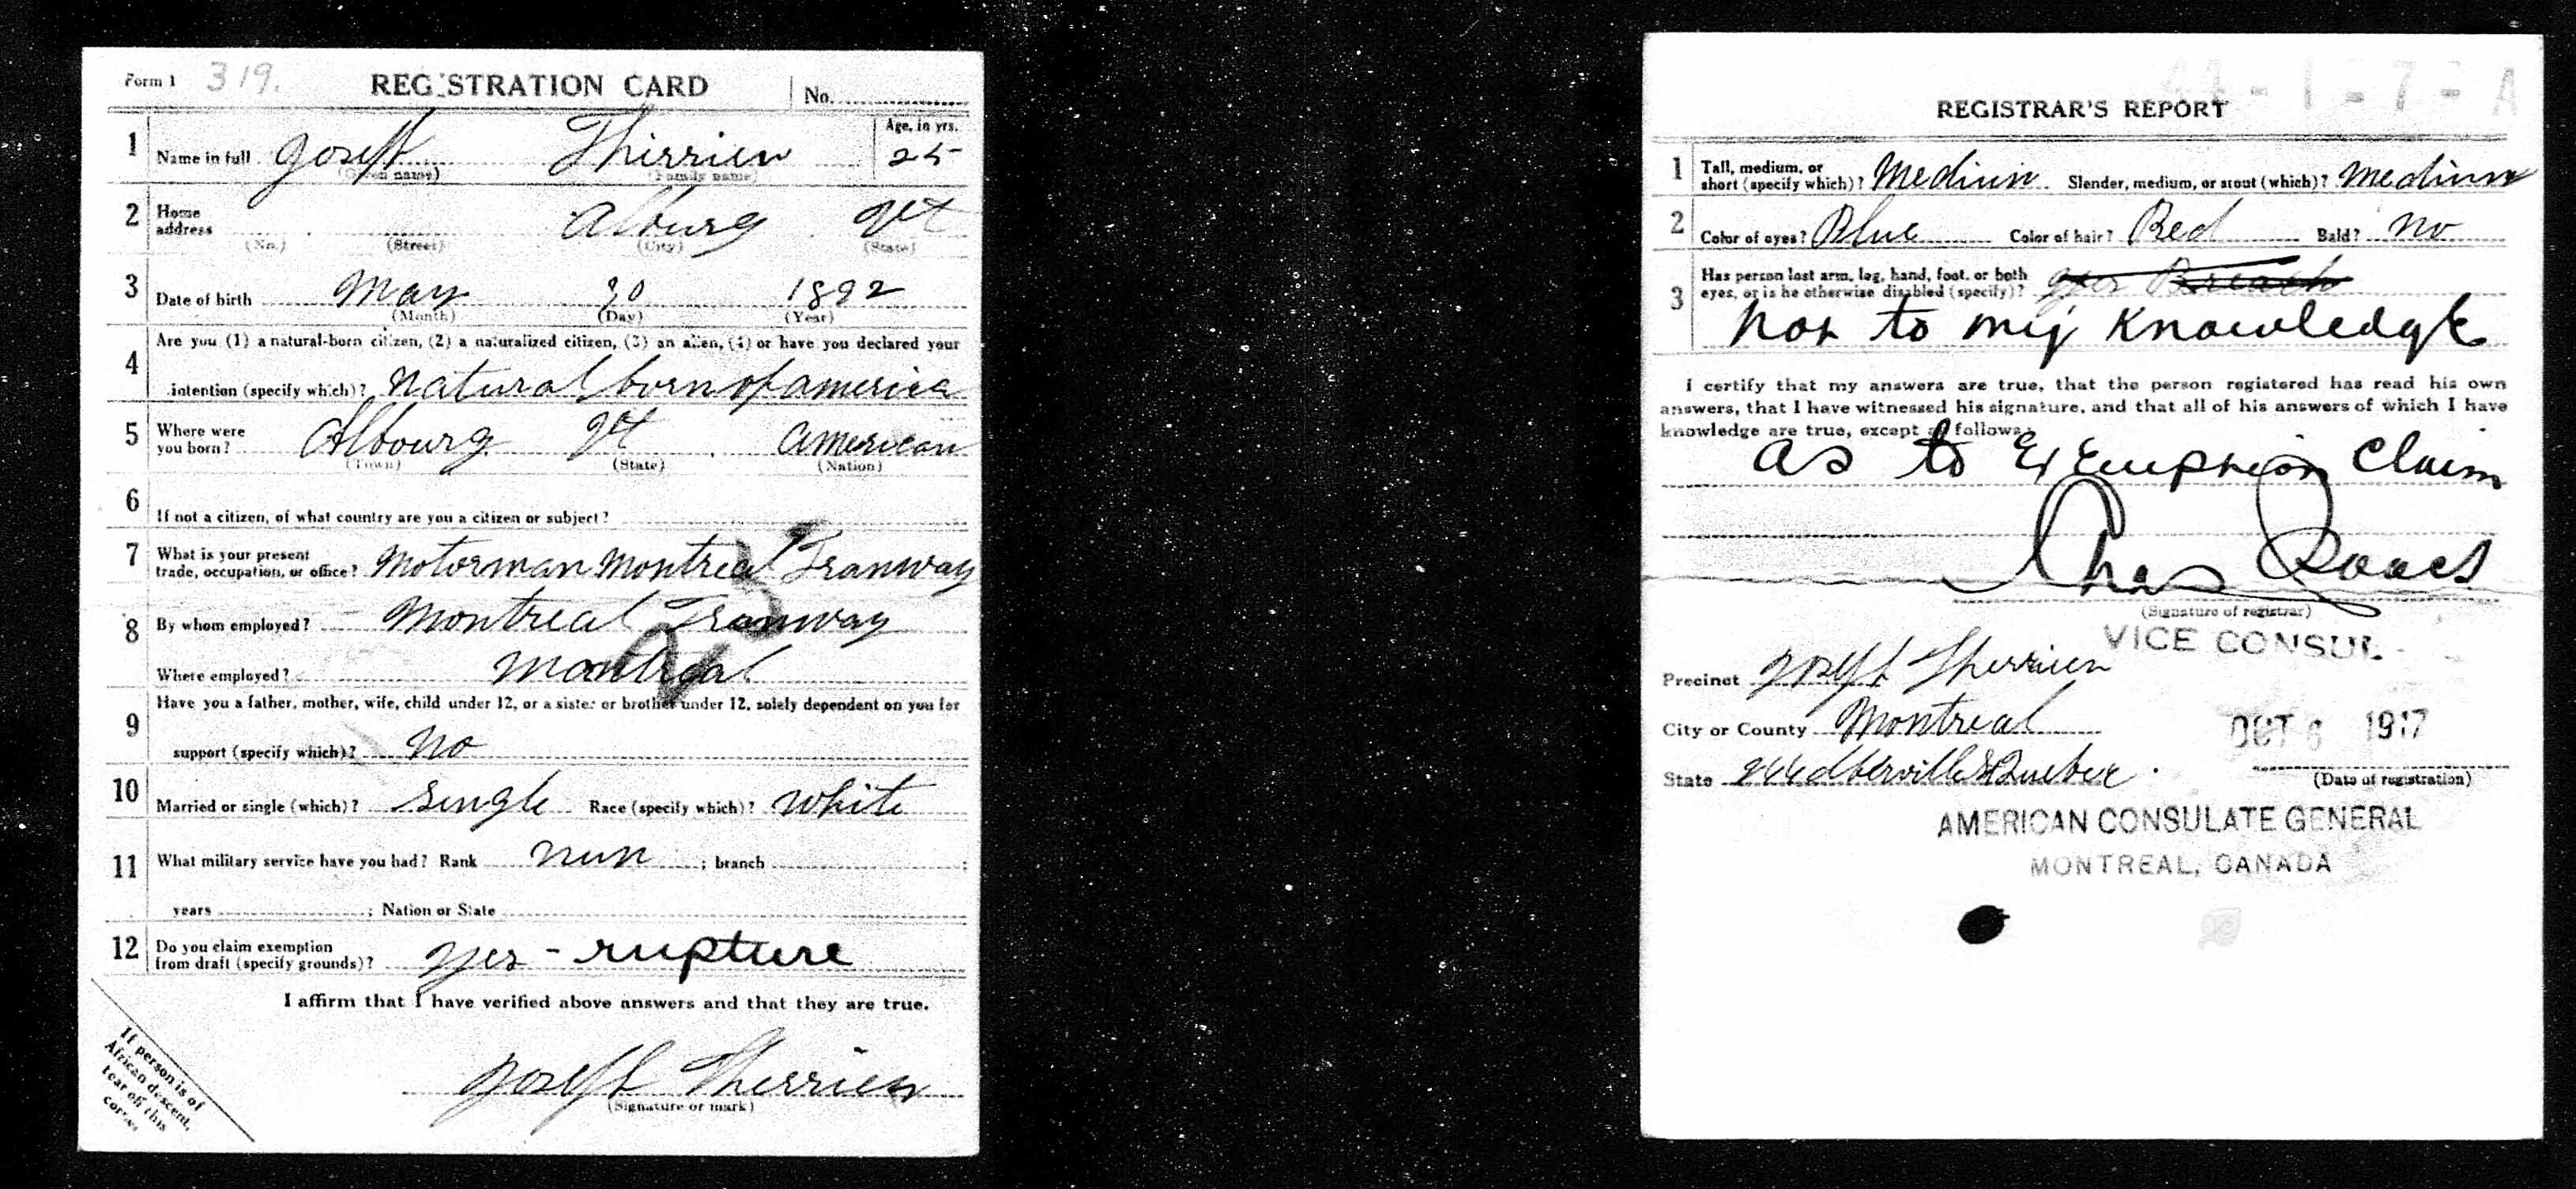 Form 1 319. REGISTRATION CARD No.
1 Name in full Joseph Therrien Age, in yrs. 25
(Given name) (Family name)
2 Home address Alburg Vt
(No.) (Street) (City) (State)
3 Date of birth May 30 1892
(Month) (Day) (Year)
4 Are you (1) a natural-born citizen, (2) a naturalized citizen, (3) an alien, (4) or have you declared your
intention (specify which)? Natural born of america
5 Where were you born? Albourg Vt American
(Town) (State) (Nation)
6 If not a citizen, of what country are you a citizen or subject?
7 What is your present trade, occupation, or office? Motorman Montreal Tranway
8 By whom employed? Montreal Tranway
Where employed? Montreal
9 Have you a father, mother, wife, child under 12, or a sister or brother under 12, solely dependent on you for
support (specify which)? No
10 Married or single (which)? Single Race (specify which)? White
11 What military service have you had? Rank nun ; branch ;
years ; Nation or State
12 Do you claim exemption from draft (specify grounds)? yes - rupture
I affirm that I have verified above answers and that they are true.
Joseph Therrien
(Signature or mark)
If person is of
African descent,
tear off this
corner
REGISTRAR'S REPORT
1 Tall, medium, or short (specify which)? Medium Slender, medium, or stout (which)? Medium
2 Color of eyes? Blue Color of hair? Red Bald? No
3 Has person lost arm, leg, hand, foot, or both
eyes, or is he otherwise disabled (specify)? yes Breach
Not to my knowledge
I certify that my answers are true, that the person registered has read his own
answers, that I have witnessed his signature, and that all of his answers of which I have
knowledge are true, except as follows:
as to Exemption Claim
Chas
(Signature of registrar)
VICE CONSUL
Precinct Joseph Therrien
City or County Montreal OCT 6 1917
State Quebec (Date of registration)
AMERICAN CONSULATE GENERAL
MONTREAL, CANADA